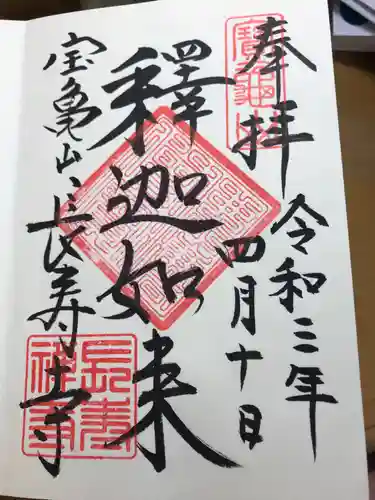 奉拝
令和三年
四月十日
釋迦如来
宝亀山、長寿寺